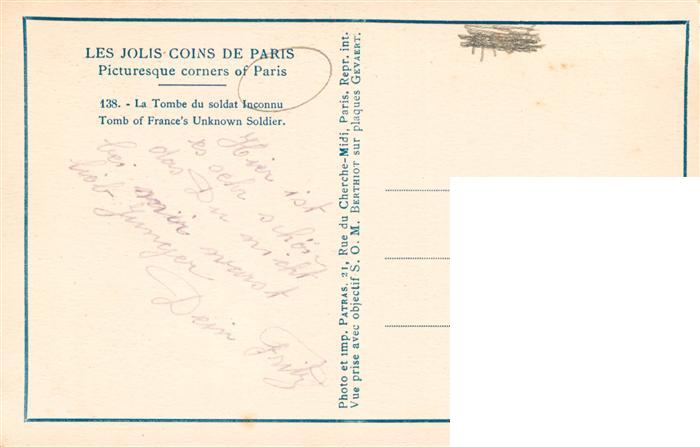 LES JOLIS COINS DE PARIS
Picturesque corners of Paris
138. - La Tombe du soldat Inconnu
Tomb of France's Unknown Soldier.
Hier ist
es sehr schön
das Du nicht
bei mir warst
lieb Junger
Dein Fritz
Photo et imp. PATRAS. 21, Rue du Cherche-Midi, Paris. Repr. int.
Vue prise avec objectif S. O. M. BERTHIOT sur plaques GEVAERT.